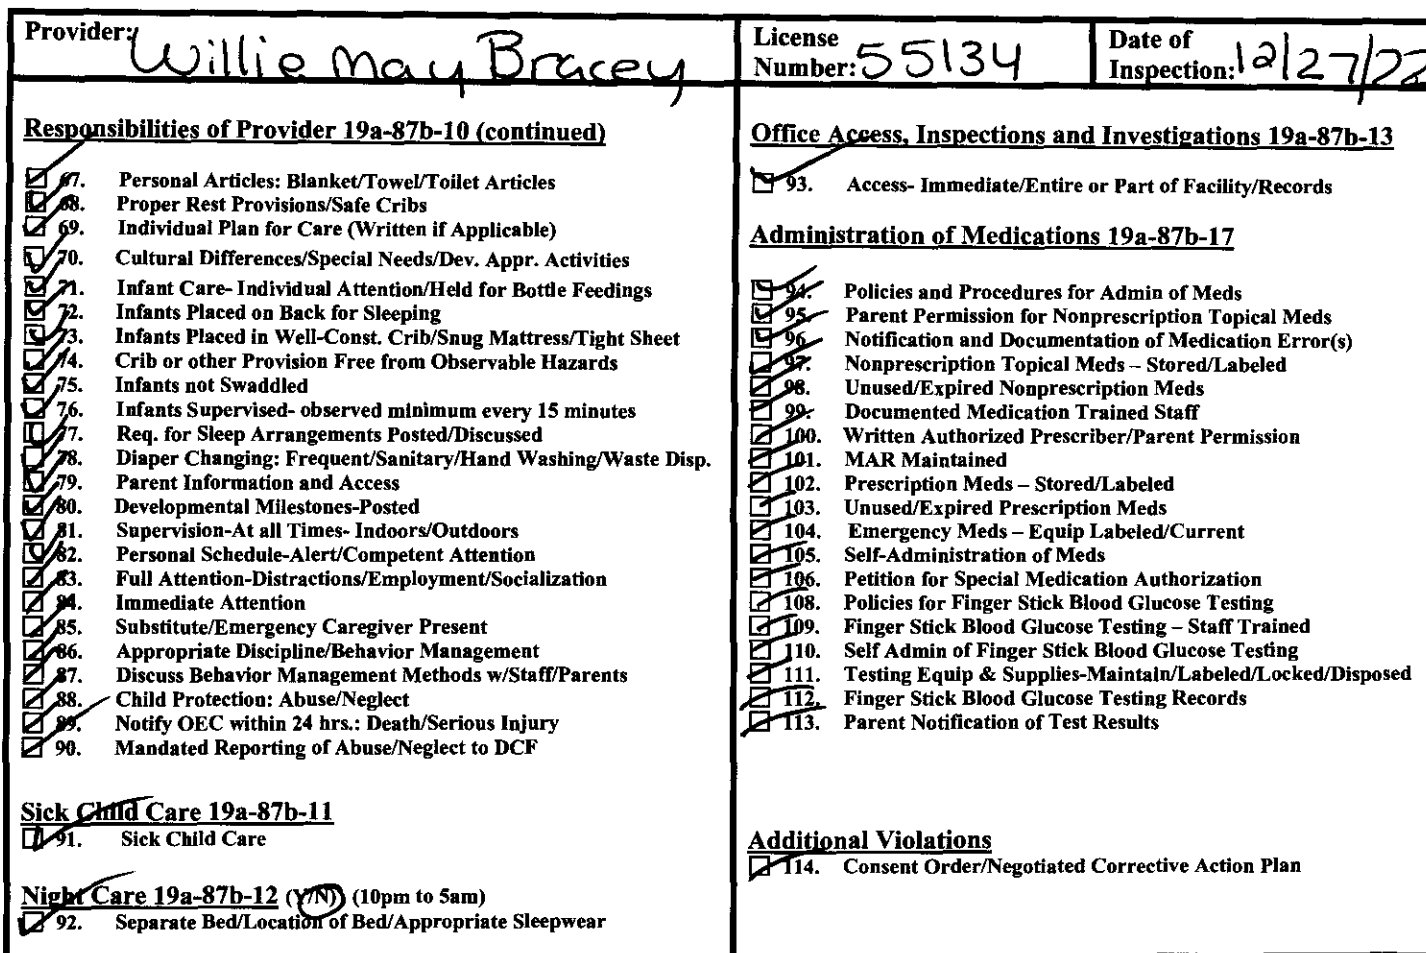 Provider: Willie May Bracey
License Number: 55134
Date of Inspection: 12/27/22
Responsibilities of Provider 19a-87b-10 (continued)
67. Personal Articles: Blanket/Towel/Toilet Articles
68. Proper Rest Provisions/Safe Cribs
69. Individual Plan for Care (Written if Applicable)
70. Cultural Differences/Special Needs/Dev. Appr. Activities
71. Infant Care- Individual Attention/Held for Bottle Feedings
72. Infants Placed on Back for Sleeping
73. Infants Placed in Well-Const. Crib/Snug Mattress/Tight Sheet
74. Crib or other Provision Free from Observable Hazards
75. Infants not Swaddled
76. Infants Supervised- observed minimum every 15 minutes
77. Req. for Sleep Arrangements Posted/Discussed
78. Diaper Changing: Frequent/Sanitary/Hand Washing/Waste Disp.
79. Parent Information and Access
80. Developmental Milestones-Posted
81. Supervision-At all Times- Indoors/Outdoors
82. Personal Schedule-Alert/Competent Attention
83. Full Attention-Distractions/Employment/Socialization
84. Immediate Attention
85. Substitute/Emergency Caregiver Present
86. Appropriate Discipline/Behavior Management
87. Discuss Behavior Management Methods w/Staff/Parents
88. Child Protection: Abuse/Neglect
89. Notify OEC within 24 hrs.: Death/Serious Injury
90. Mandated Reporting of Abuse/Neglect to DCF
Sick Child Care 19a-87b-11
91. Sick Child Care
Night Care 19a-87b-12 (Y/N) (10pm to 5am)
92. Separate Bed/Location of Bed/Appropriate Sleepwear
Office Access, Inspections and Investigations 19a-87b-13
93. Access- Immediate/Entire or Part of Facility/Records
Administration of Medications 19a-87b-17
94. Policies and Procedures for Admin of Meds
95. Parent Permission for Nonprescription Topical Meds
96. Notification and Documentation of Medication Error(s)
97. Nonprescription Topical Meds – Stored/Labeled
98. Unused/Expired Nonprescription Meds
99. Documented Medication Trained Staff
100. Written Authorized Prescriber/Parent Permission
101. MAR Maintained
102. Prescription Meds – Stored/Labeled
103. Unused/Expired Prescription Meds
104. Emergency Meds – Equip Labeled/Current
105. Self-Administration of Meds
106. Petition for Special Medication Authorization
108. Policies for Finger Stick Blood Glucose Testing
109. Finger Stick Blood Glucose Testing – Staff Trained
110. Self Admin of Finger Stick Blood Glucose Testing
111. Testing Equip & Supplies-Maintain/Labeled/Locked/Disposed
112. Finger Stick Blood Glucose Testing Records
113. Parent Notification of Test Results
Additional Violations
114. Consent Order/Negotiated Corrective Action Plan